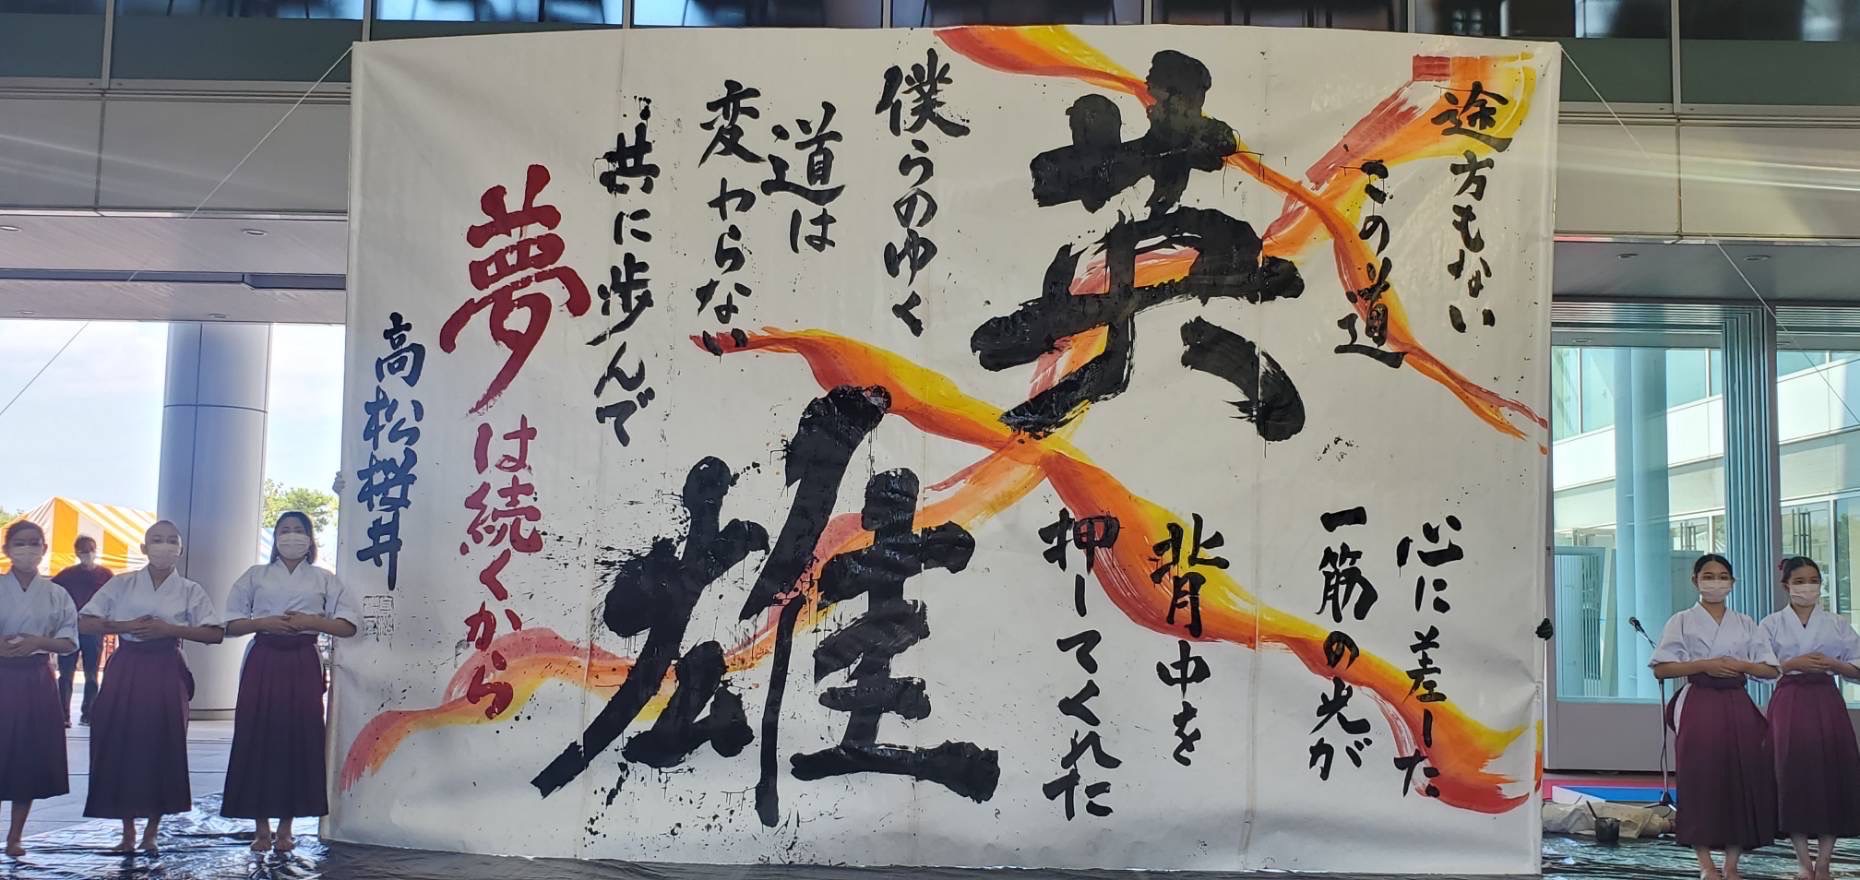 途方もない
この道
心に差した
一筋の光が
背中を
押してくれた
英雄
僕らのゆく
道は
変わらない
共に歩んで
夢は続くから
高松桜井